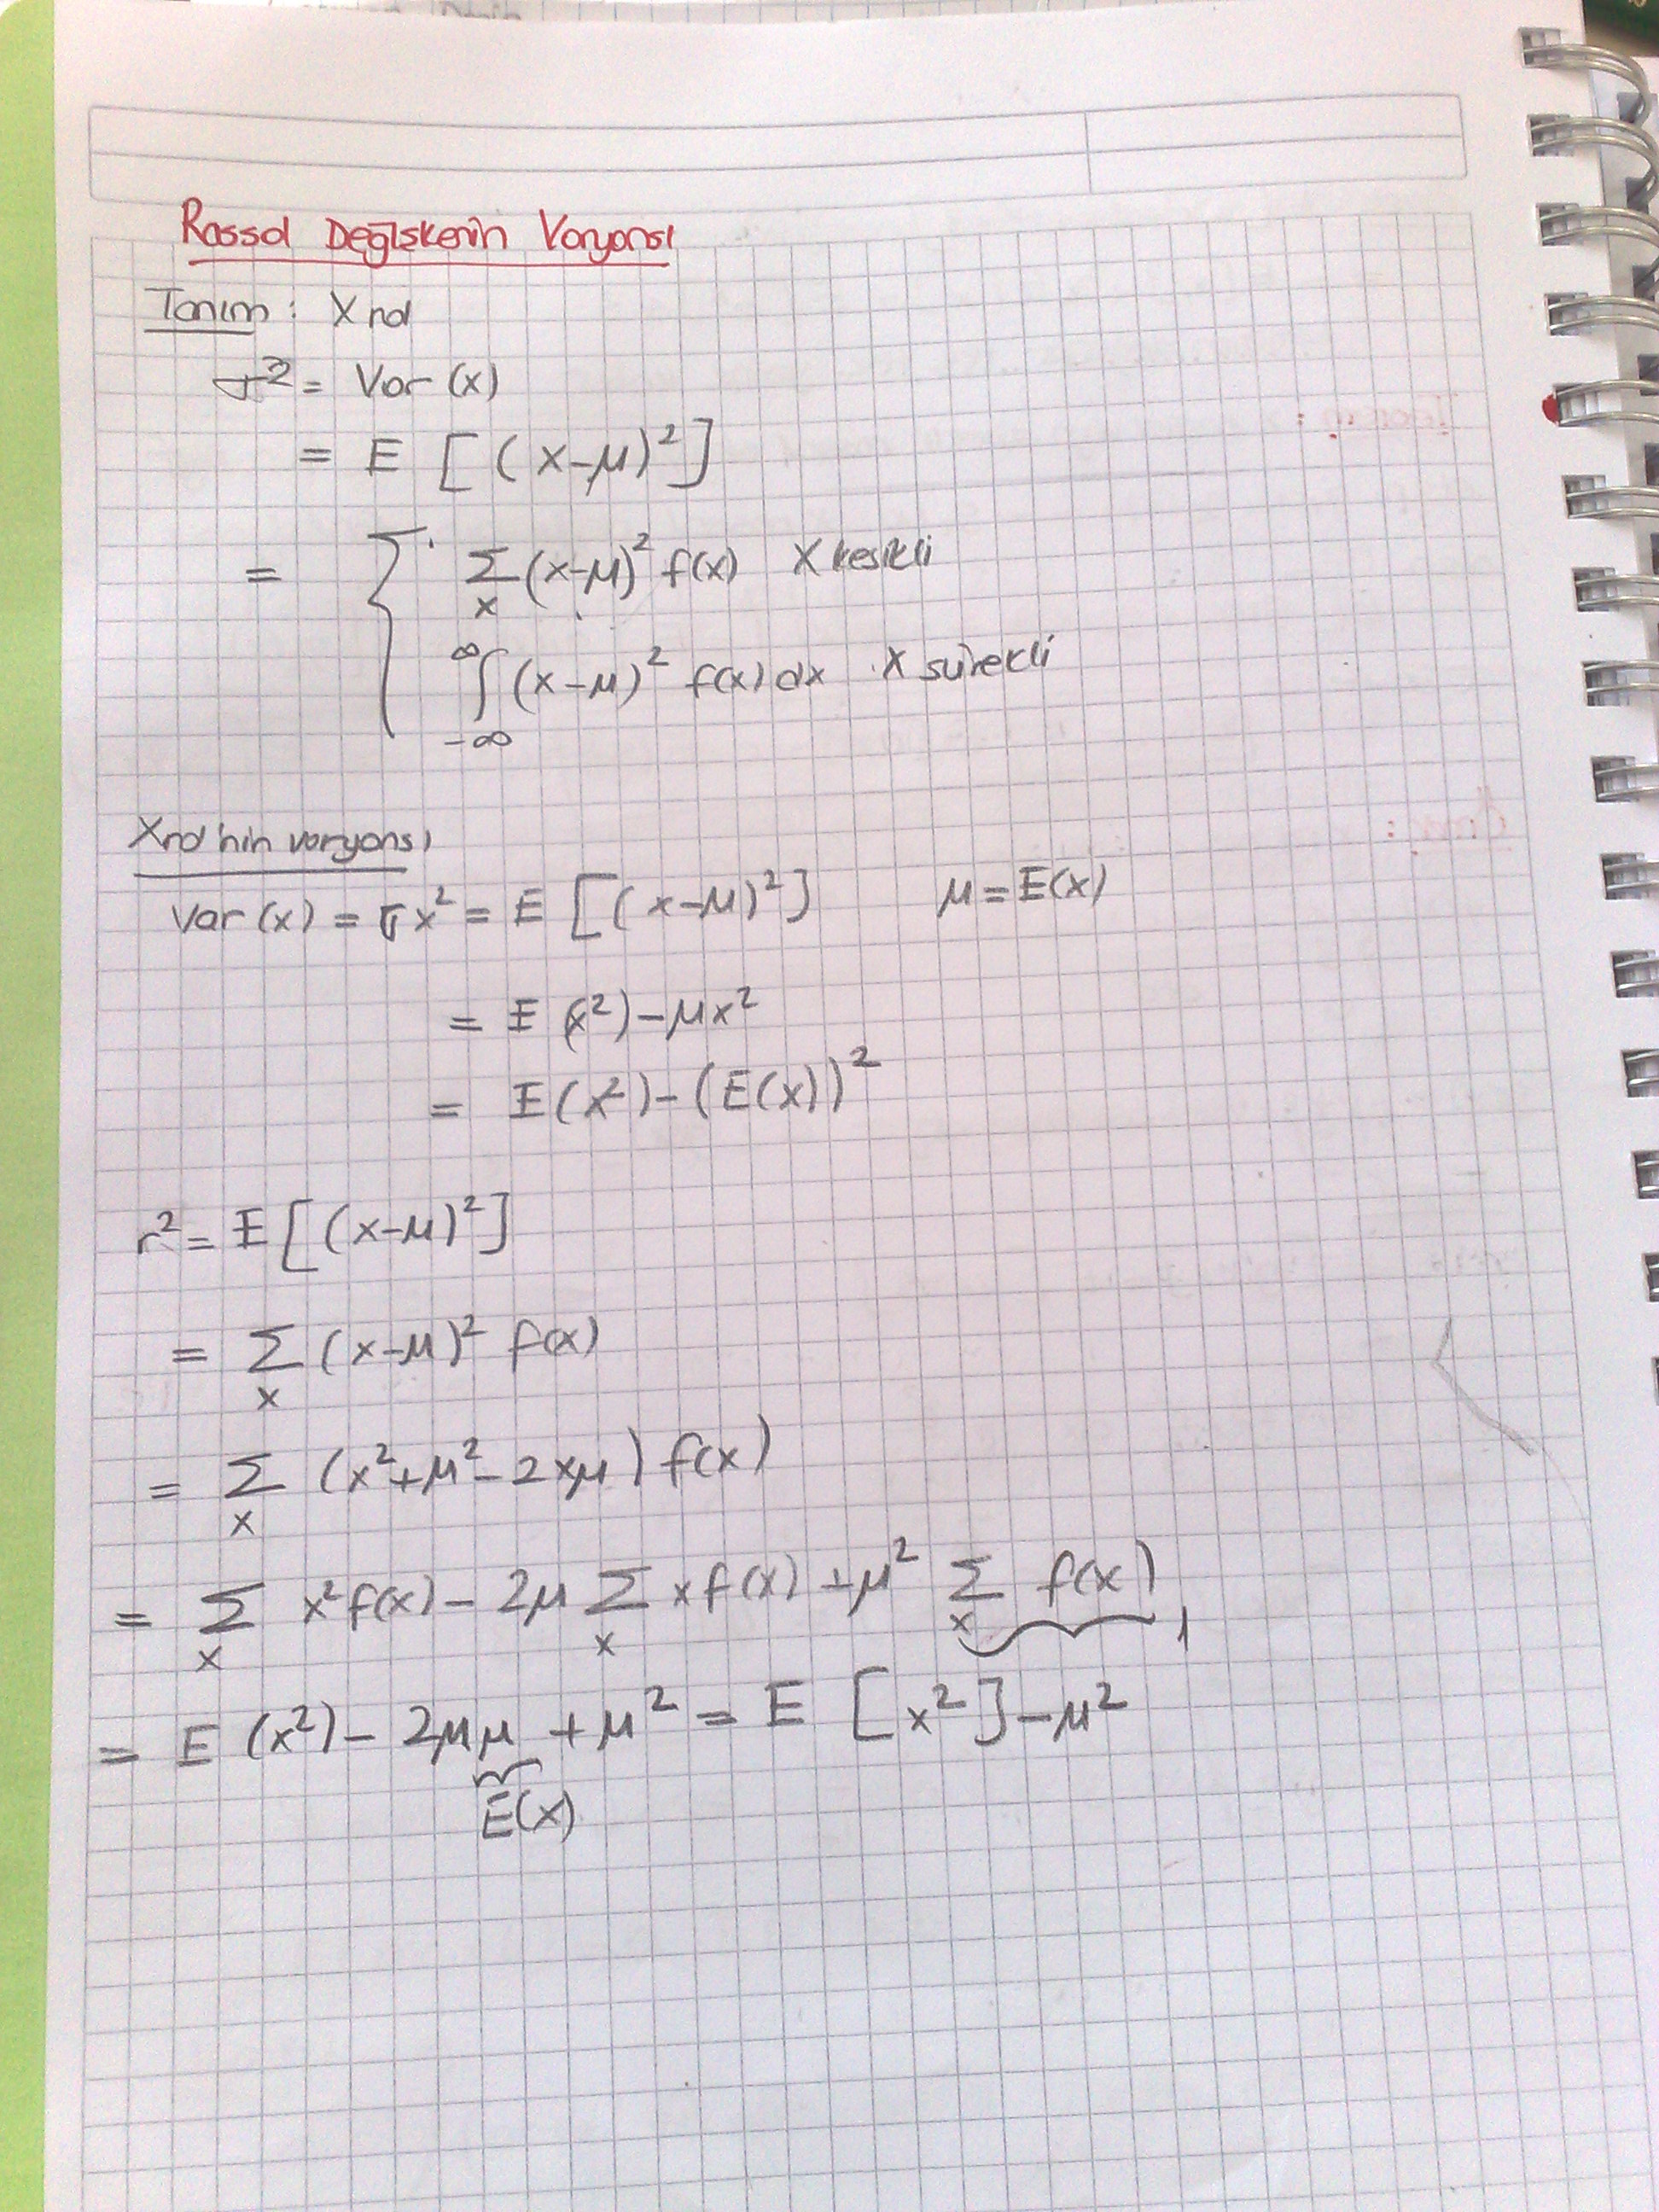 Rassal Değişkenin Varyansı
Tanım: X rd
σ² = Var (x)
= E [(x-μ)²]
= { Σ_x (x-μ)² f(x) X kesikli
∫_{-∞}^{∞} (x-μ)² f(x) dx X sürekli
X rd'nin varyansı
Var (x) = σx² = E [(x-μ)²] μ = E(x)
= E (x²) - μx²
= E(x²) - (E(x))²
σ² = E [(x-μ)²]
= Σ_x (x-μ)² f(x)
= Σ_x (x²+μ²-2xμ) f(x)
= Σ_x x² f(x) - 2μ Σ_x x f(x) + μ² Σ_x f(x) 1
= E (x²) - 2μμ + μ² = E [x²] - μ²
E(x)